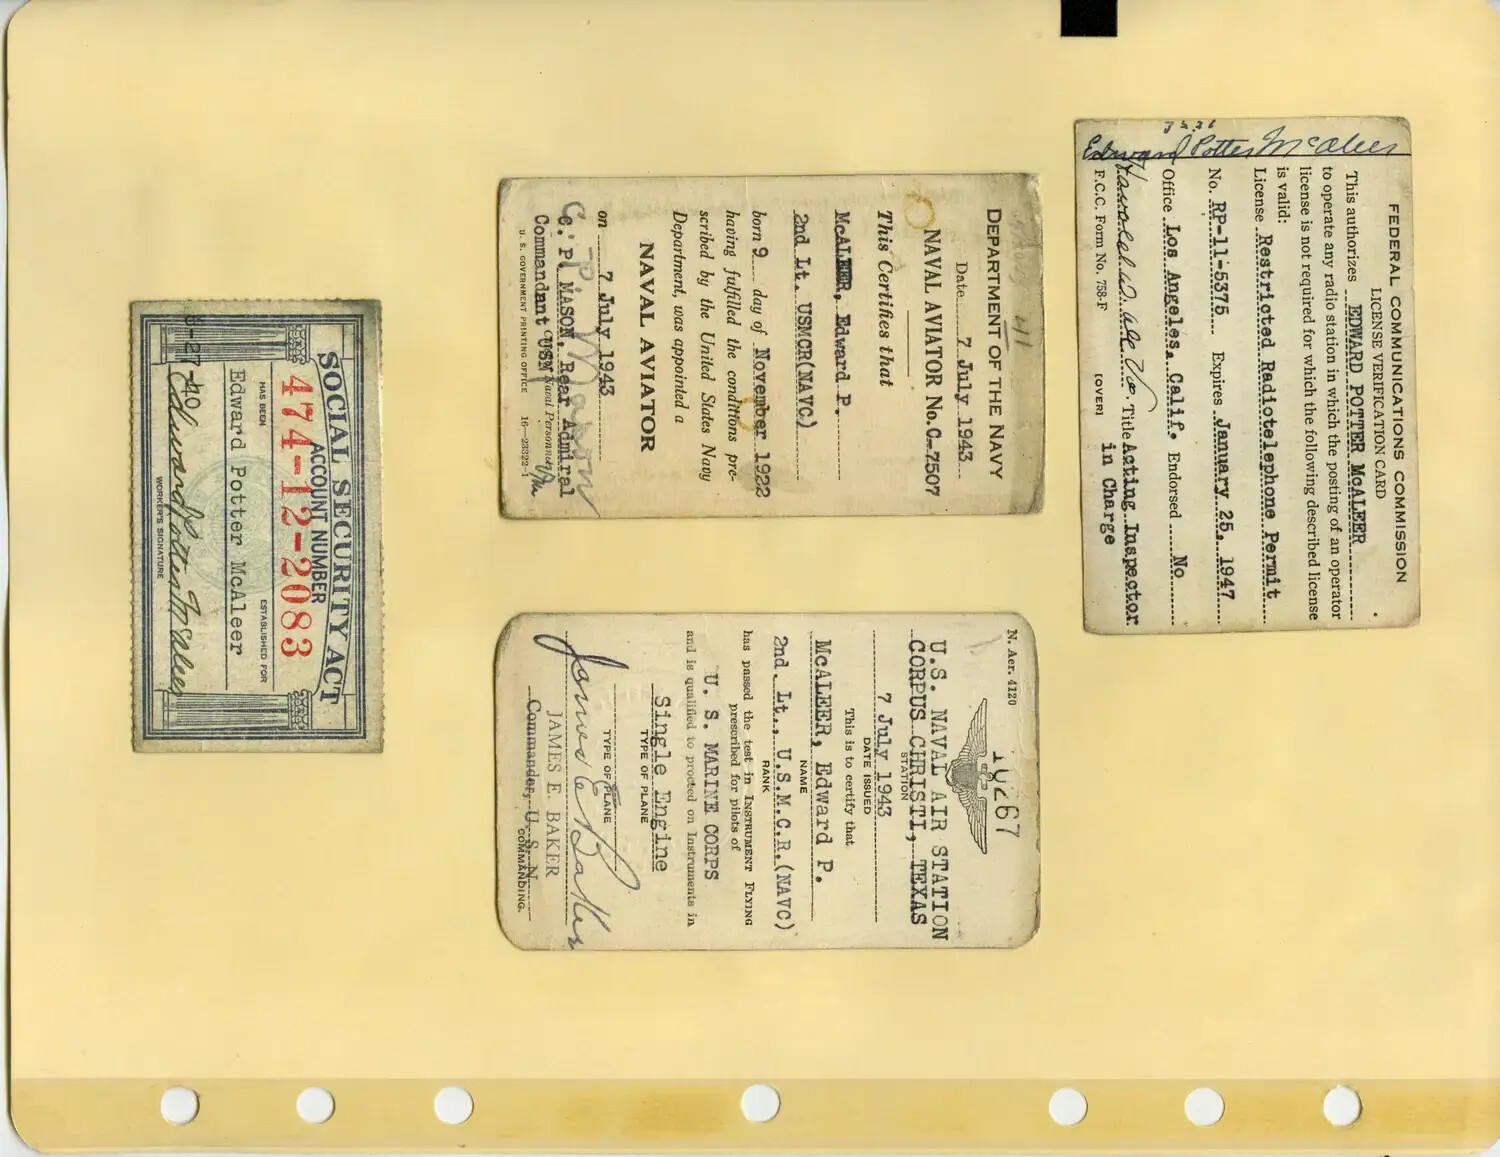 FEDERAL COMMUNICATIONS COMMISSION
LICENSE VERIFICATION CARD
This authorizes EDWARD POTTER McALEER
to operate any radio station in which the posting of an operator
license is not required for which the following described license
is valid:
License Restricted Radiotelephone Permit
No. RP-11-5375 Expires January 25, 1947
Office Los Angeles, Calif. Endorsed No
Title Acting Inspector
in Charge
F.C.C. Form No. 758-F (OVER)
Edward Potter McAleer
DEPARTMENT OF THE NAVY
Date 7 July 1943
NAVAL AVIATOR No. C-7507
This Certifies that
McALEER, Edward P.
2nd Lt. USMCR(NAVC)
born 9 day of November 1922
having fulfilled the conditions pre-
scribed by the United States Navy
Department, was appointed a
NAVAL AVIATOR
on 7 July 1943
C. P. Mason
C. P. MASON, Rear Admiral
Commandant USN
U. S. GOVERNMENT PRINTING OFFICE 16—23322-1
N. Aer. 4120
10267
U.S. NAVAL AIR STATION
CORPUS CHRISTI, TEXAS
STATION
7 July 1943
DATE ISSUED
This is to certify that
McALEER, Edward P.
NAME
2nd. Lt., U.S.M.C.R.(NAVC)
RANK
has passed the test in INSTRUMENT FLYING
prescribed for pilots of
U. S. MARINE CORPS
and is qualified to proceed on Instruments in
Single Engine
TYPE OF PLANE
TYPE OF PLANE
James E Baker
JAMES E. BAKER
Commander, U. S. N.
COMMANDING.
SOCIAL SECURITY ACT
ACCOUNT NUMBER
474-12-2083
HAS BEEN ESTABLISHED FOR
Edward Potter McAleer
8-27-40 Edward Potter McAleer
WORKER'S SIGNATURE